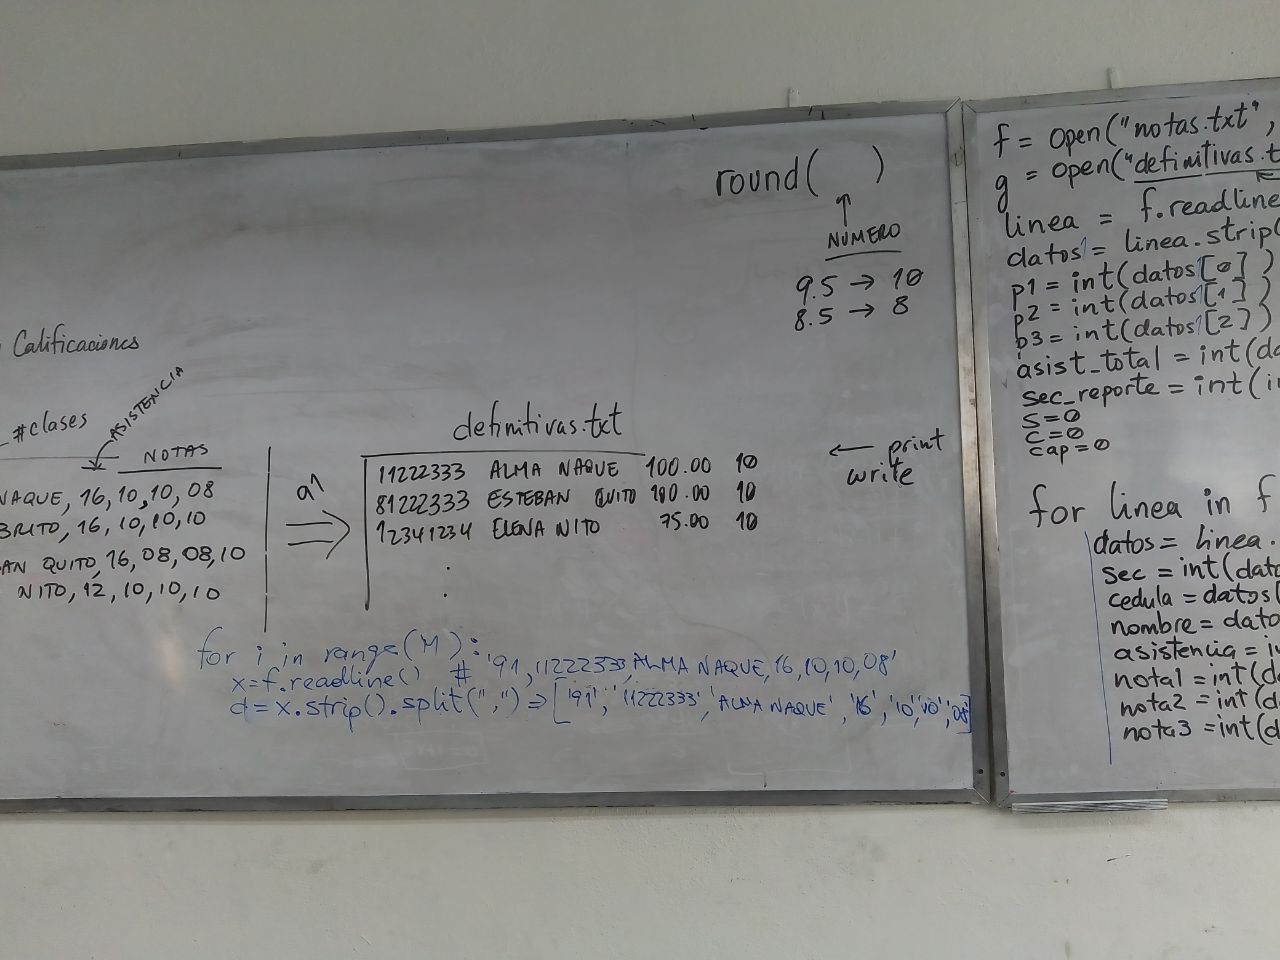 round( )
↑
NUMERO
9.5 → 10
8.5 → 8
Calificaciones
#clases
ASISTENCIA
NOTAS
NAQUE, 16, 10, 10, 08
BRITO, 16, 10, 10, 10
AN QUITO, 16, 08, 08, 10
NITO, 12, 10, 10, 10
a1
⇒
definitivas.txt
11222333 ALMA NAQUE 100.00 10
81222333 ESTEBAN QUITO 100.00 10
12341234 ELENA NITO 75.00 10
.
.
← print
write
for i in range(M):
x=f.readline() # '91,11222333,ALMA NAQUE,16,10,10,08'
d=x.strip().split(",") ⇒ ['91','11222333','ALMA NAQUE','16','10','10','08']
f = open("notas.txt",
g = open("definitivas.t
linea = f.readline
datos1 = linea.strip(
p1 = int(datos1[0])
p2 = int(datos1[1])
p3 = int(datos1[2])
asist_total = int(da
sec_reporte = int(i
s=0
c=0
cap=0
for linea in f
datos = linea.
sec = int(dato
cedula = datos[
nombre = dato
asistencia = i
nota1 = int(da
nota2 = int(d
nota3 = int(d